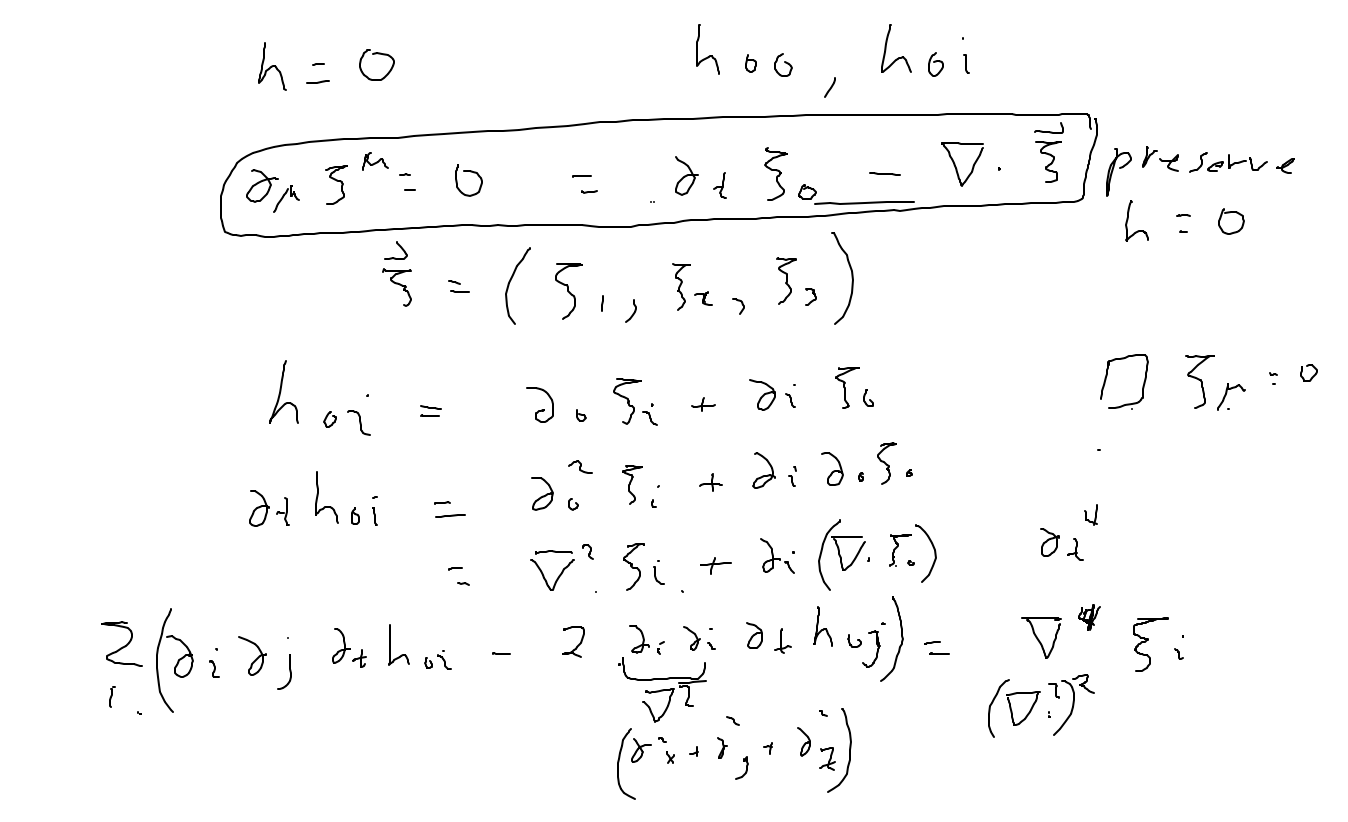 h = 0    h₀₀ , h₀ᵢ
∂_μ ξ^μ = 0 = ∂_t ξ₀ − ∇· ξ⃗  preserve
h = 0
ξ⃗ = ( ξ₁ , ξ₂ , ξ₃ )
h₀ᵢ = ∂₀ ξᵢ + ∂ᵢ ξ₀    □ ξ_μ = 0
∂_t h₀ᵢ = ∂₀² ξᵢ + ∂ᵢ ∂₀ ξ₀
= ∇² ξᵢ + ∂ᵢ (∇· ξ₀)    ∂_t⁴
Σᵢ (∂ᵢ ∂ⱼ ∂_t h₀ᵢ − 2 ∂ᵢ ∂ᵢ ∂_t h₀ⱼ) = ∇⁴ ξᵢ
∇²    (∇²)²
(∂²ₓ + ∂²_y + ∂²_z)